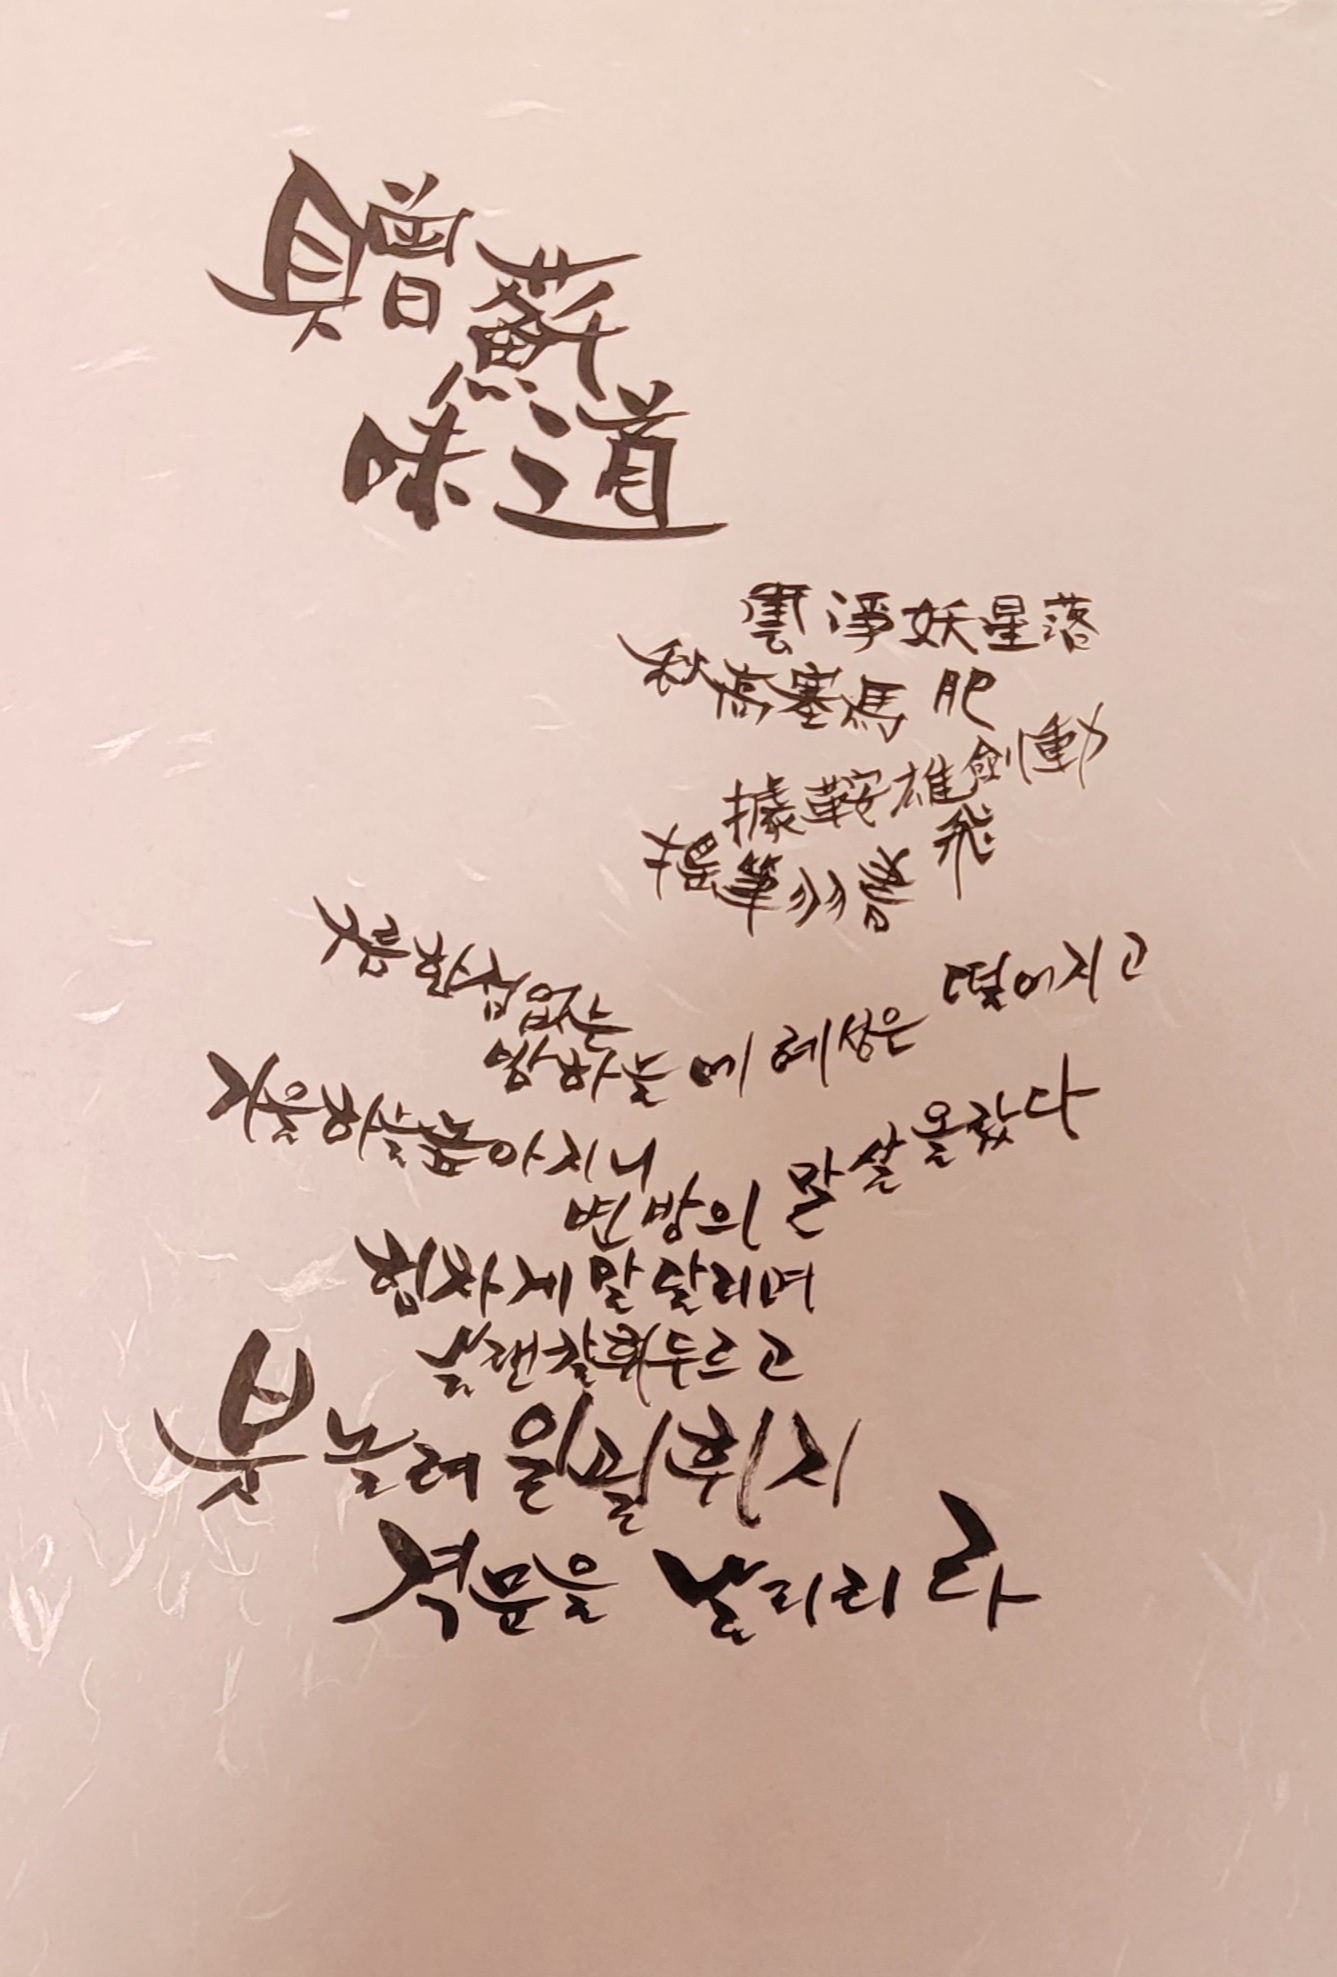 贈蘇
味道
雲淨妖星落
秋高塞馬肥
據鞍雄劍動
搖筆羽書飛
맑 한점 없는
밤하늘에 혜성은 떨어지고
가을하늘 높아지니
변방의 말 살 올랐다
힘차게 말 달리며
날랜 칼 휘두르고
붓 놀려 일필휘지
격문을 날리리라